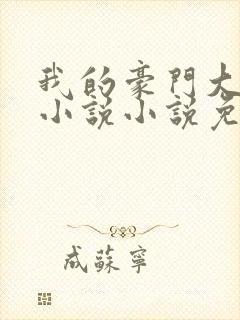 我的豪門大
小說小說免
成蘇寧